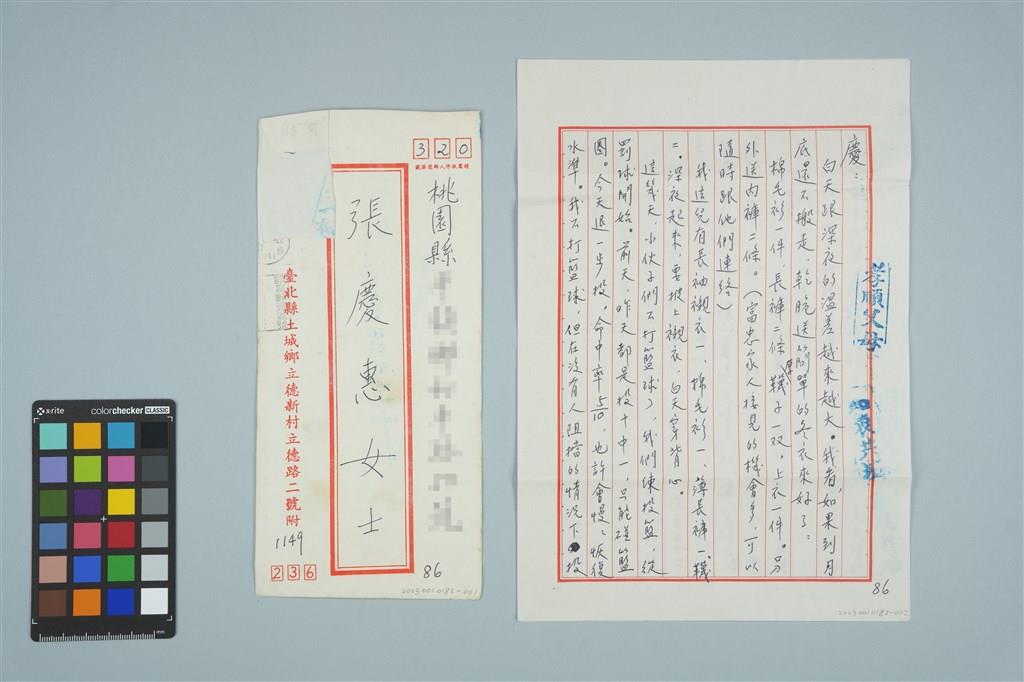 320
桃園縣
張慶惠 女士
臺北縣土城鄉立德新村立德路二號附
1149
236
86
2023 001 0182-001
慶：
白天跟深夜的溫差越來越大。我看，如果到月
底還不搬走，乾脆送簡單的冬衣來好了：
棉毛衫一件，長褲二條，厚襪子一双，上衣一件。另
外送內褲二條。（富忠家人接見的機會多，可以
隨時跟他們連絡）
我這兒有長袖襯衣一、棉毛衫一、薄長褲一、襪
二。深夜起來，要披上襯衣，白天穿背心。
這幾天，小伙子們不打籃球了，我們練投籃，從
罰球開始。前天、昨天都是投十中一，只能碰籃
圈。今天退一步投，命中率5/10，也許會慢慢恢復
水準。我不打籃球，但在沒有人阻擋的情況下投
孝順父母
86
2023 001 0182-002
x-rite
colorchecker CLASSIC
mm